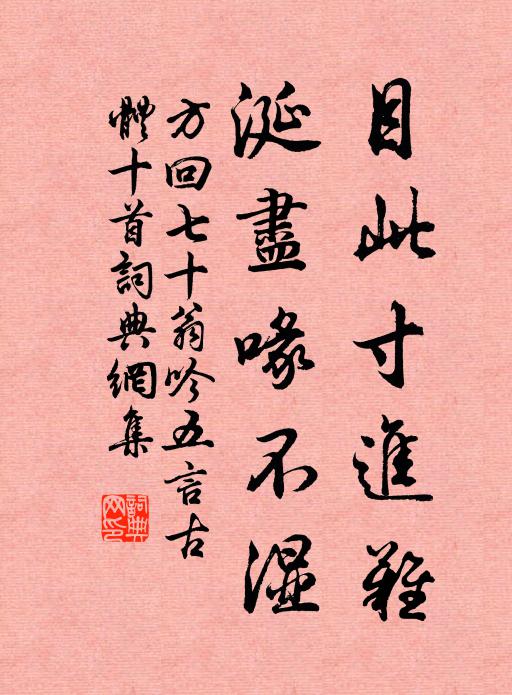 目此寸進難
涎盡喙不濕
方回七十翁吟五言古
體十首詞典網集
詞典
网印